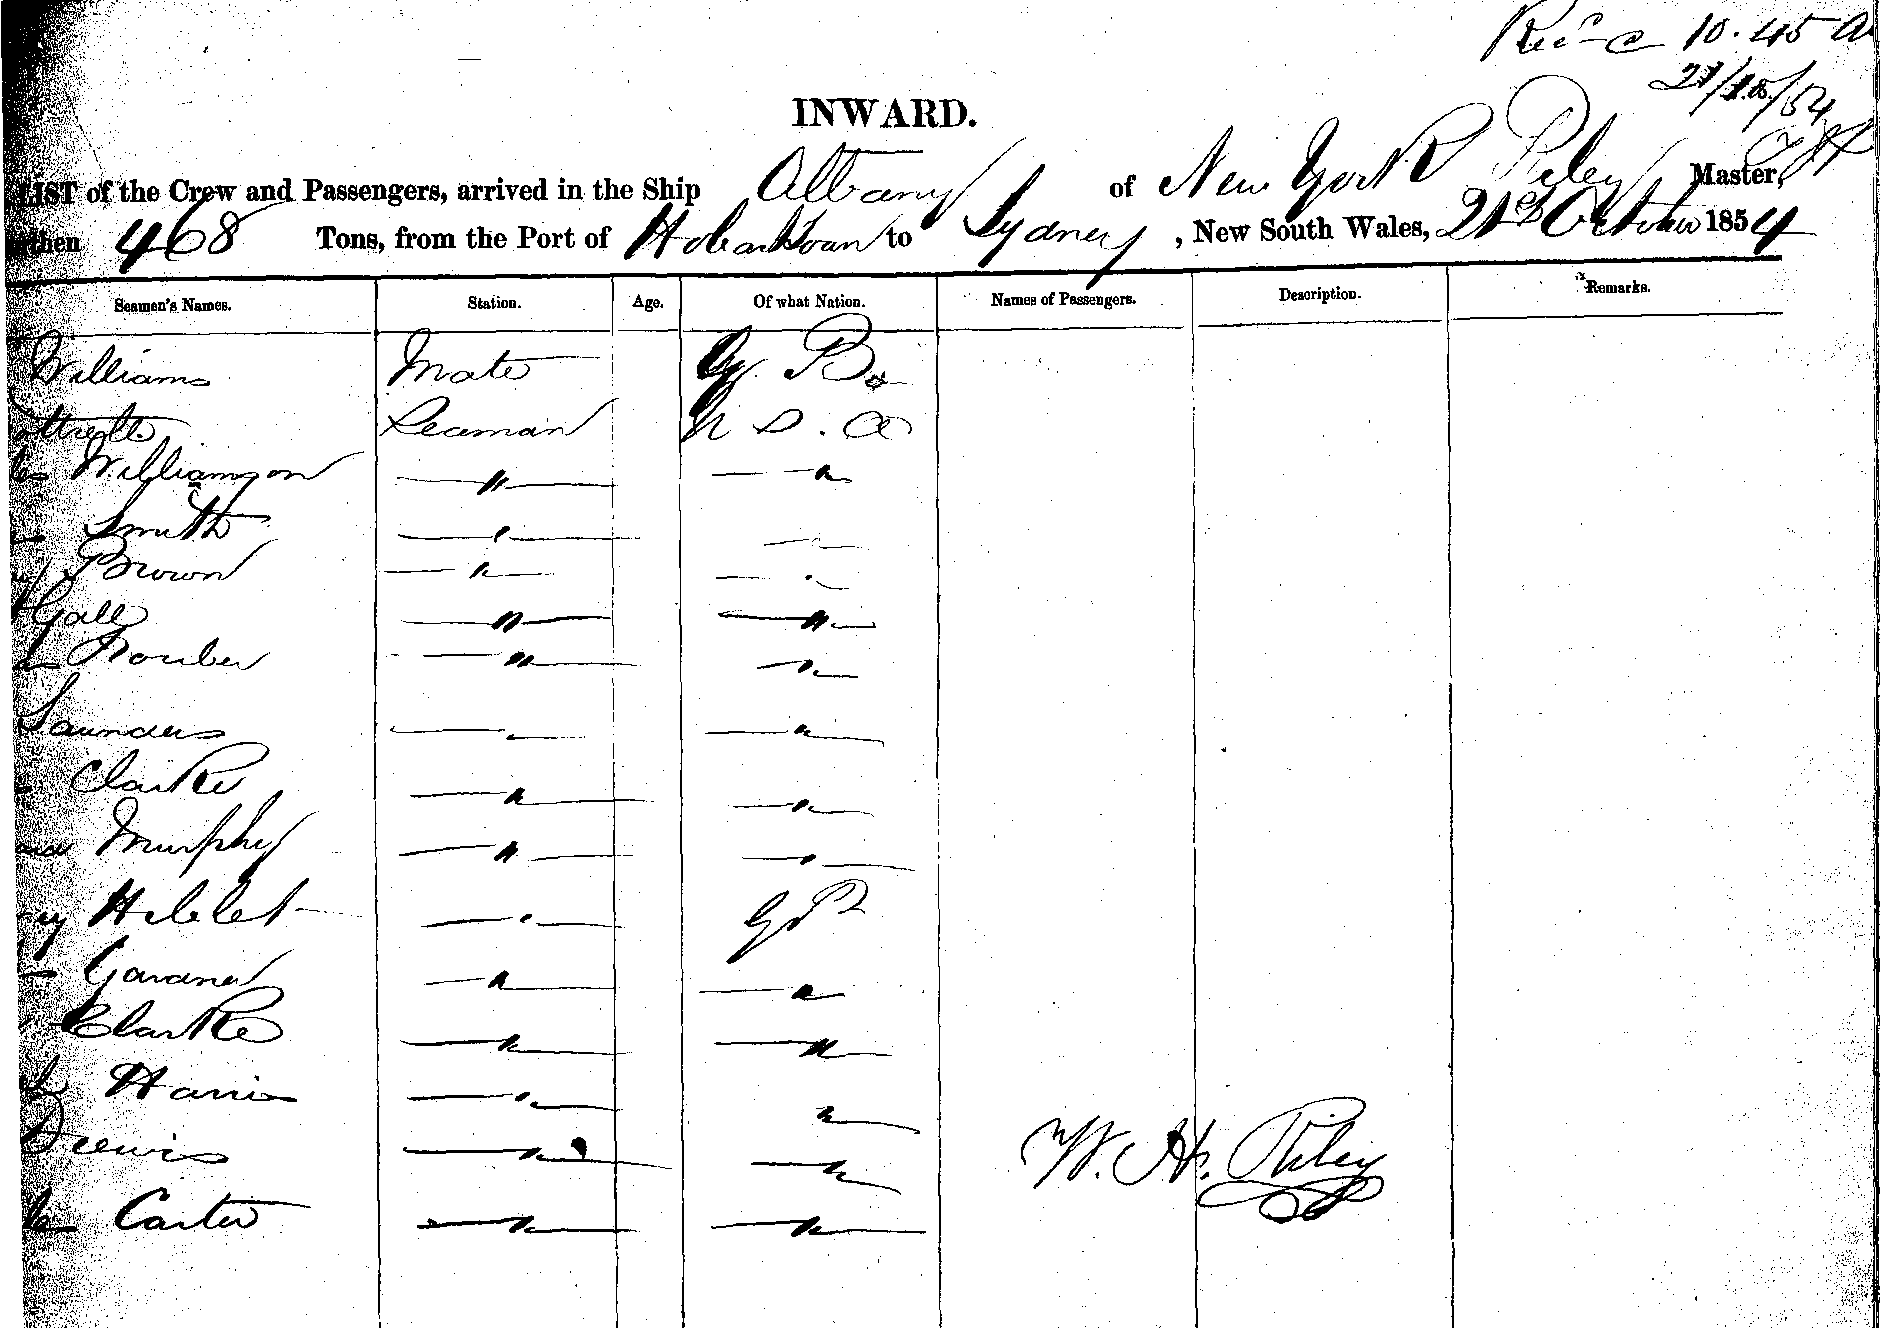 10.45 a
21/10/54
INWARD.
LIST of the Crew and Passengers, arrived in the Ship Albany of New York Riley Master,
Burthen 468 Tons, from the Port of Hobart Town to Sydney, New South Wales, 21st October 1854
Seamen's Names. Station. Age. Of what Nation. Names of Passengers. Description. Remarks.
Williams Mate G. B.
Seaman U S. A
Williamson — " — — " —
Smith — " — — " —
Brown — " — — " —
Gall — " — — " —
— " — — " —
Saunders — " — — " —
Clarke — " — — " —
Murphy — " — — " —
— " — G B
Gardner — " — — " —
Clarke — " — — " —
Harris — " — "
— " — — " —
W. H. Riley
Carter — " — — " —